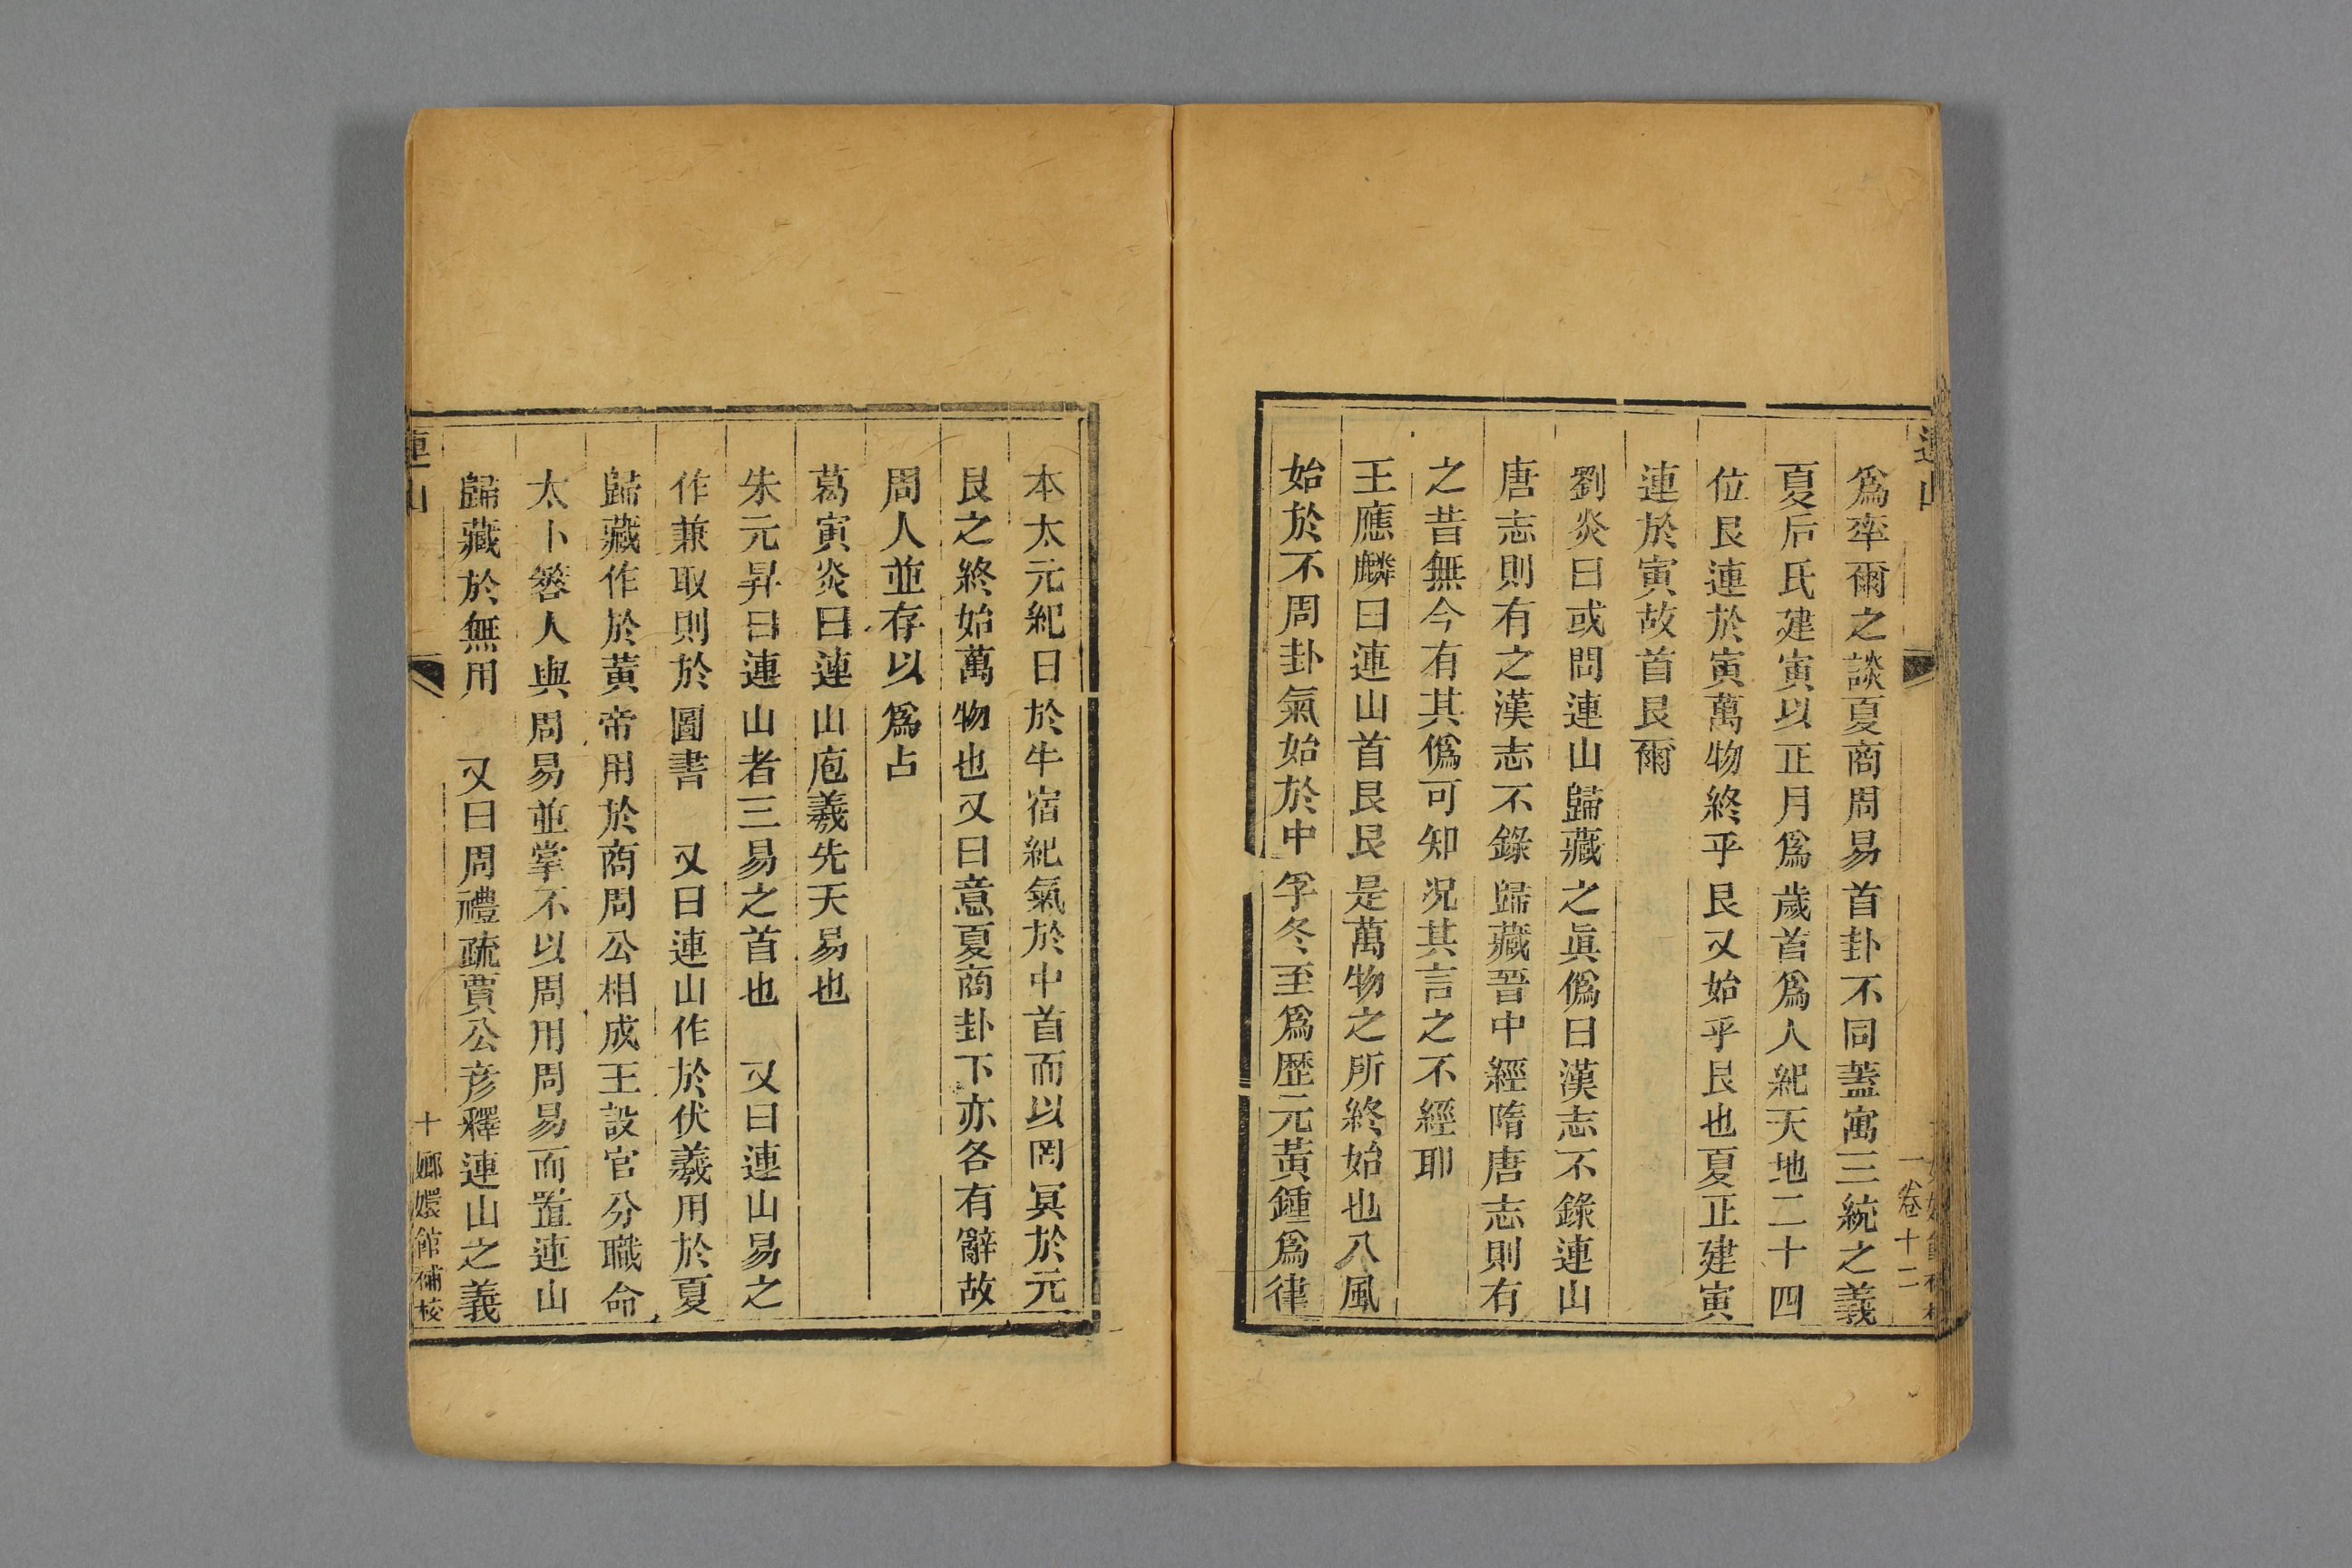 連山
一卷十二
爲率爾之談夏商周易首卦不同蓋寓三統之義
夏后氏建寅以正月爲歲首爲人紀天地二十四
位艮連於寅萬物終乎艮又始乎艮也夏正建寅
連於寅故首艮爾
劉炎曰或問連山歸藏之眞僞曰漢志不錄連山
唐志則有之漢志不錄歸藏晉中經隋唐志則有
之昔無今有其僞可知況其言之不經耶
王應麟曰連山首艮艮是萬物之所終始也八風
始於不周卦氣始於中孚冬至爲歷元黃鍾爲律
本太元紀日於牛宿紀氣於中首而以罔冥於元
艮之終始萬物也又曰意夏商卦下亦各有辭故
周人並存以爲占
葛寅炎曰連山庖羲先天易也
朱元昇曰連山者三易之首也　又曰連山易之
作兼取則於圖書　又曰連山作於伏羲用於夏
歸藏作於黃帝用於商周公相成王設官分職命
太卜簭人與周易並掌不以周用周易而置連山
歸藏於無用　又曰周禮疏賈公彥釋連山之義
連山
十
嫏嬛館補校